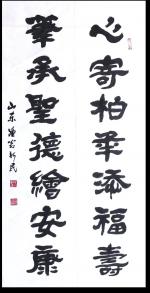 心寄柏年添福壽
筆承聖德繪安康
山東